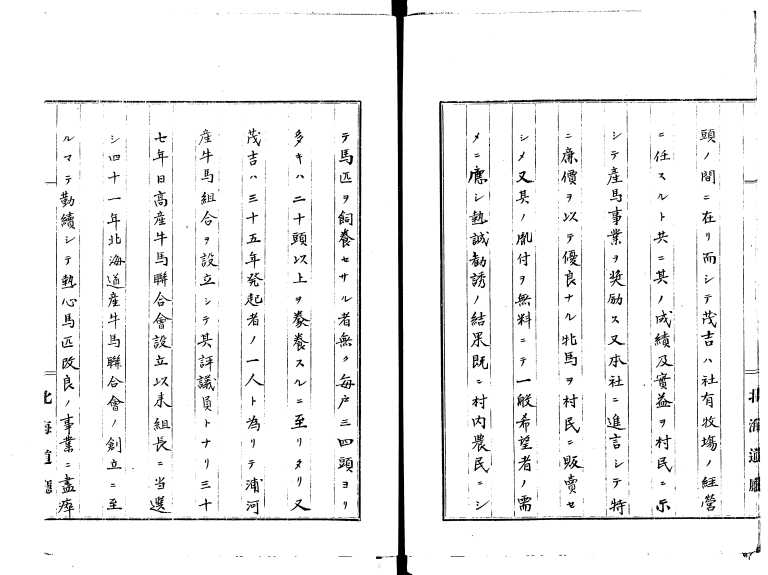 頭ノ間ニ在リ而シテ茂吉ハ社有牧場ノ経営
ニ任スルト共ニ其ノ成績及實益ヲ村民ニ示
シテ産馬事業ヲ奨励ス又本社ニ進言シテ特
ニ廉價ヲ以テ優良ナル牝馬ヲ村民ニ販賣セ
シメ又其ノ胤付ヲ無料ニテ一般希望者ノ需
メニ應シ熱誠勧誘ノ結果既ニ村内農民ニシ
北海道廳
テ馬匹ヲ飼養セサル者無ク毎戸三四頭ヨリ
多キハ二十頭以上ヲ豢養スルニ至リタリ又
茂吉ハ三十五年発起者ノ一人ト為リテ浦河
産牛馬組合ヲ設立シテ其評議員トナリ三十
七年日高産牛馬聯合會設立以来組長ニ当選
シ四十一年北海道産牛馬聯合會ノ創立ニ至
ルマテ勤續シテ熱心馬匹改良ノ事業ニ盡瘁
北海道廳